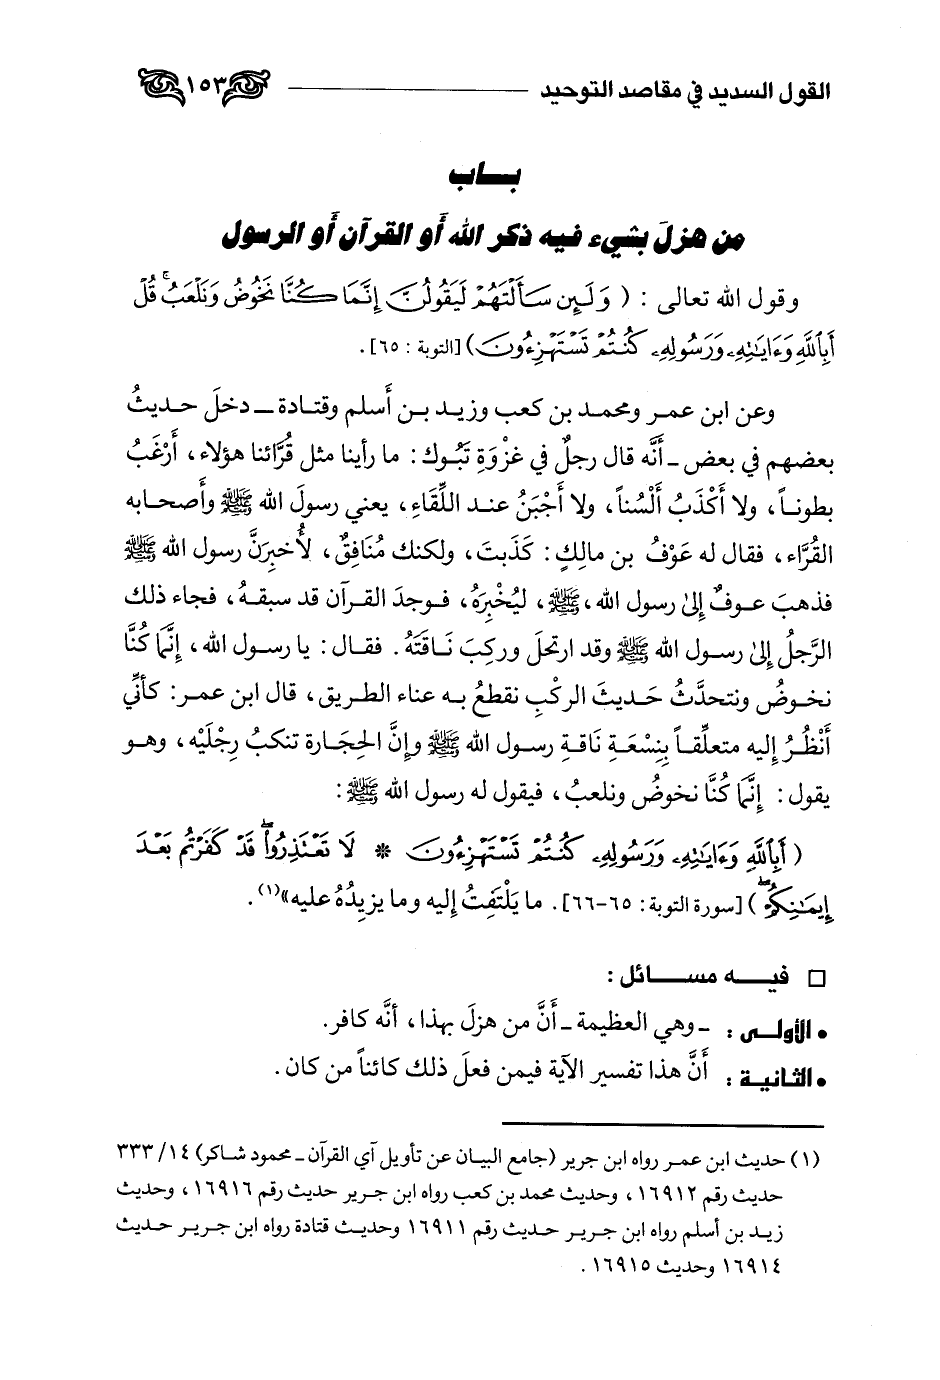 القول السديد في مقاصد التوحيد ١٥٣
بـــاب
من هزلَ بشيء فيه ذكر الله أو القرآن أو الرسول
وقول الله تعالى : ( وَلَئِن سَأَلْتَهُمْ لَيَقُولُنَّ إِنَّمَا كُنَّا نَخُوضُ وَنَلْعَبُ ۚ قُلْ
أَبِاللَّهِ وَءَايَٰتِهِۦ وَرَسُولِهِۦ كُنتُمْ تَسْتَهْزِءُونَ) [التوبة : ٦٥] .
وعن ابن عمر ومحمد بن كعب وزيد بن أَسلم وقتادة ـ دخلَ حديثُ
بعضهم في بعض ـ أَنَّه قال رجلٌ في غزْوَةِ تَبُوك : ما رأينا مثل قُرَّائنا هؤلاء ، أَرْغَبُ
بطوناً ، ولا أَكْذَبُ أَلْسُناً ، ولا أَجْبَنُ عند اللِّقَاءِ ، يعني رسولَ الله ﷺ وأَصحابه
القُرَّاء ، فقال له عَوْفُ بن مالِكٍ : كَذَبتَ ، ولكنك مُنَافِقٌ ، لأُخبِرَنَّ رسول الله ﷺ
فذهبَ عوفٌ إِلى رسول الله ، ﷺ ، ليُخْبِرَهُ ، فوجدَ القرآن قد سبقهُ ، فجاء ذلك
الرَّجلُ إِلى رسول الله ﷺ وقد ارتحلَ وركِبَ نَاقَتَهُ . فقال : يا رسول الله ، إِنَّمَا كُنَّا
نخوضُ ونتحدَّثُ حَديثَ الركْبِ نقطعُ به عناء الطريق ، قال ابن عمر : كأنِّي
أَنْظُرُ إِليه متعلِّقاً بِنِسْعَةِ نَاقةِ رسول الله ﷺ وإِنَّ الحِجَارة تنكبُ رِجْلَيْه ، وهو
يقول : إِنَّمَا كُنَّا نخوضُ ونلعبُ ، فيقول له رسول الله ﷺ :
( أَبِاللَّهِ وَءَايَٰتِهِۦ وَرَسُولِهِۦ كُنتُمْ تَسْتَهْزِءُونَ * لَا تَعْتَذِرُوا۟ ۖ قَدْ كَفَرْتُم بَعْدَ
إِيمَٰنِكُمْ ۖ ) [سورة التوبة : ٦٥-٦٦] . ما يَلْتَفِتُ إليه وما يزيدُهُ عليه»(١) .
□ فيـــه مســـائل :
• الأولـى : ـ وهي العظيمة ـ أَنَّ من هزلَ بهذا ، أنَّه كافر .
• الثـانيـة : أَنَّ هذا تفسير الآية فيمن فعلَ ذلك كائناً من كان .
(١) حديث ابن عمر رواه ابن جرير (جامع البيان عن تأويل آي القرآن ـ محمود شاكر) ١٤/ ٣٣٣
حديث رقم ١٦٩١٢ ، وحديث محمد بن كعب رواه ابن جرير حديث رقم ١٦٩١٦ ، وحديث
زيد بن أسلم رواه ابن جرير حديث رقم ١٦٩١١ وحديث قتادة رواه ابن جرير حديث
١٦٩١٤ وحديث ١٦٩١٥ .